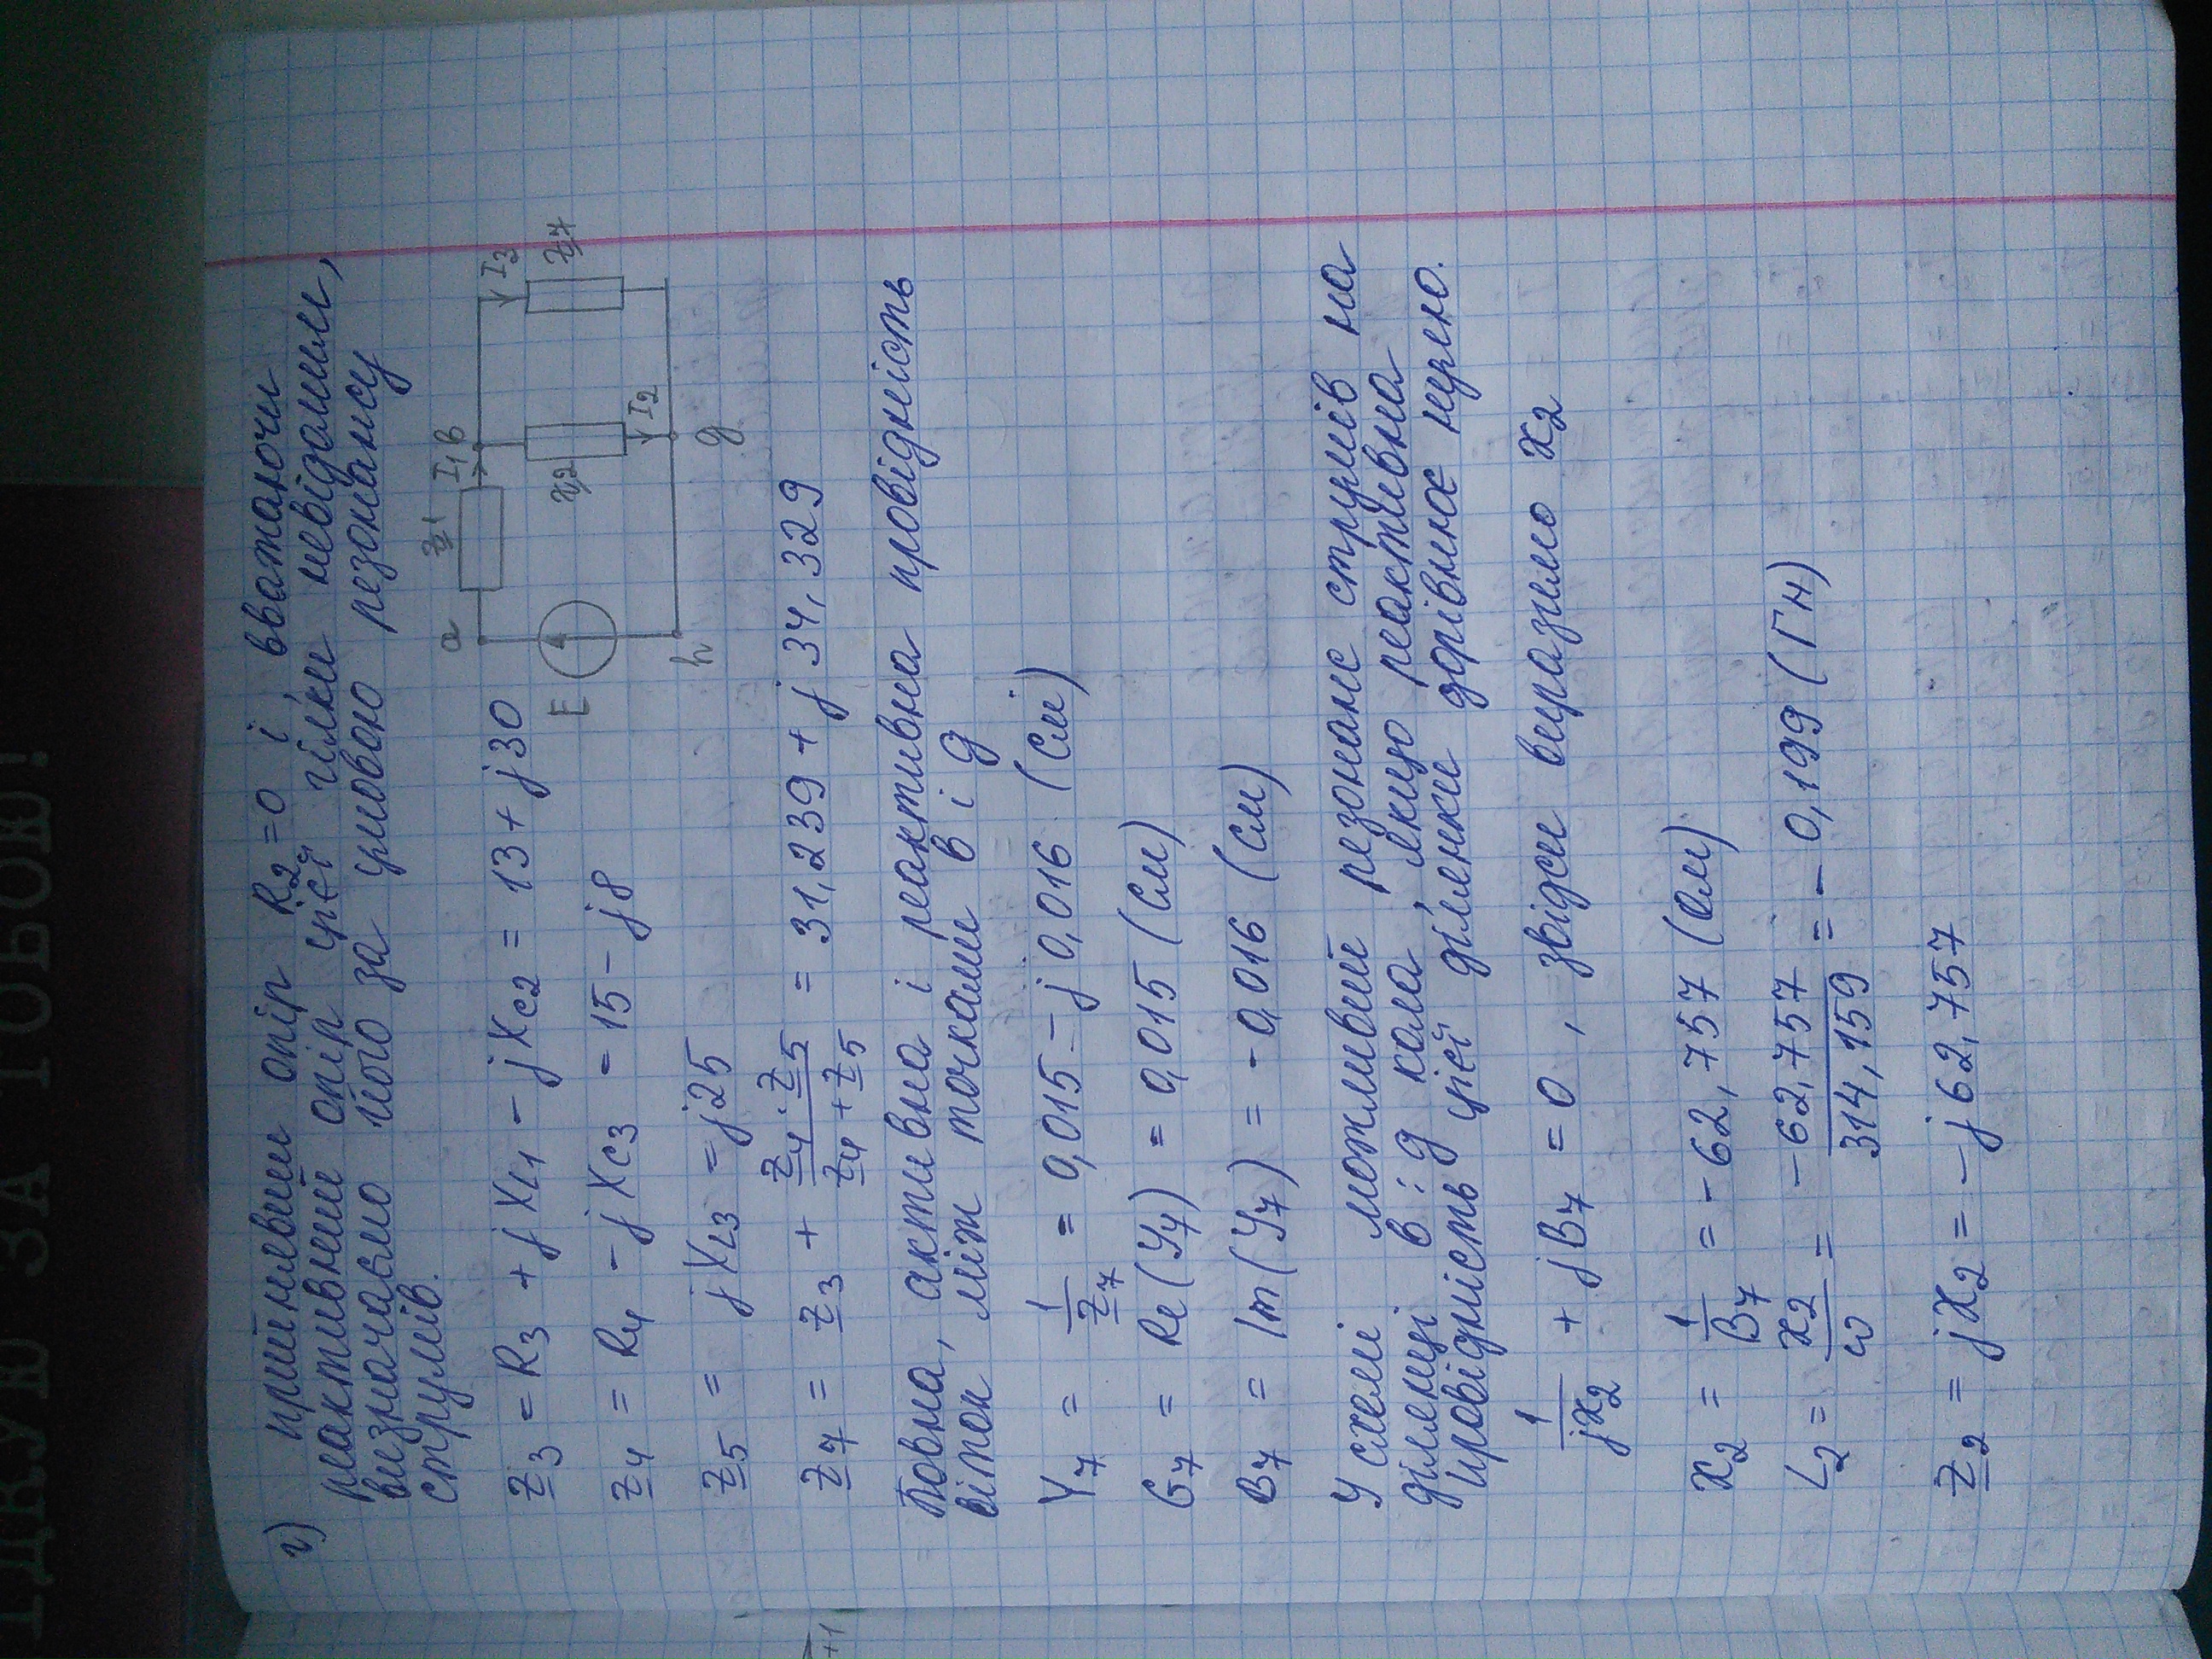 г) прийнявши опір R2 = 0 і вважаючи
реактивний опір цієї гілки невідомим,
визначаємо його за умовою резонансу
струмів.
a Z1 I1 в I3
E Z2 I2 Z7
h g
Z3 = R3 + jXL1 - jXC2 = 13 + j30
Z4 = R4 - jXC3 = 15 - j8
Z5 = jXL3 = j25
Z7 = Z3 + Z4·Z5 / Z4+Z5 = 31,239 + j34,329
Повна, активна і реактивна провідність
віток між точками в і g
Y7 = 1/Z7 = 0,015 - j0,016 (Смі)
G7 = Re(Y7) = 0,015 (См)
B7 = Im(Y7) = -0,016 (См)
У схемі можливий резонанс струмів на
ділянці в і g кола, якщо реактивна
провідність цієї ділянки дорівнює нулю.
1/jX2 + jB7 = 0, звідси виразимо X2
X2 = 1/B7 = -62,757 (Ом)
L2 = X2/ω = -62,757/314,159 = -0,199 (Гн)
Z2 = jX2 = -j62,757